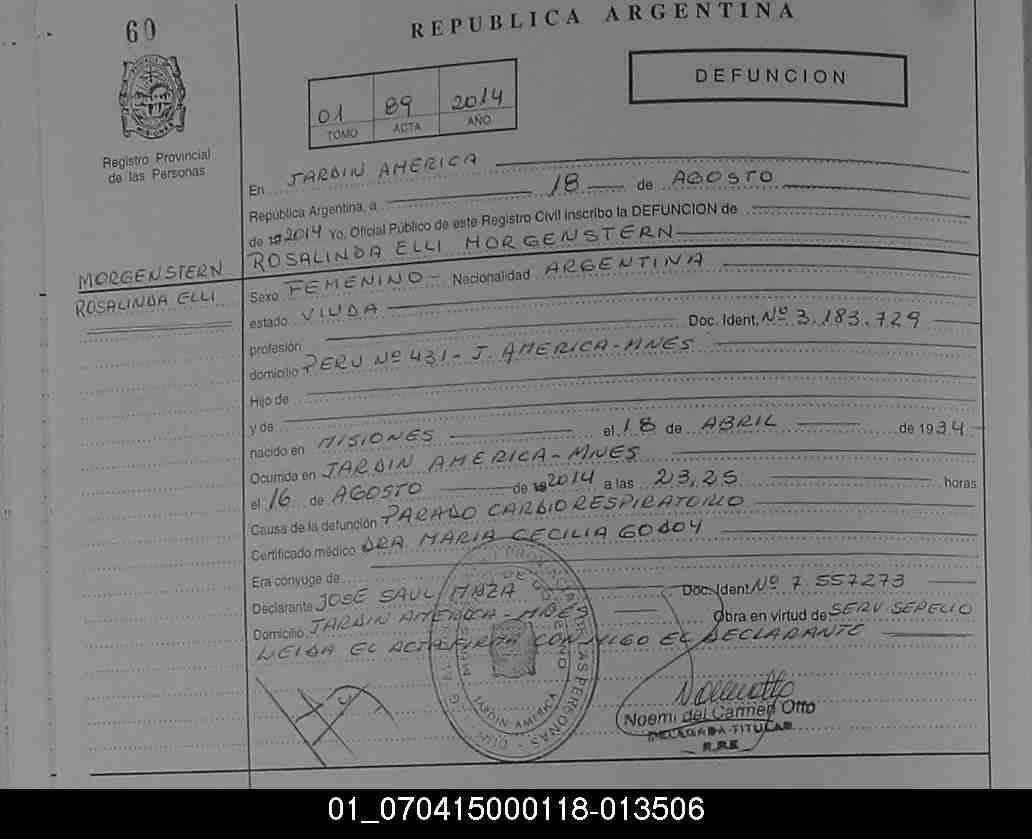 REPUBLICA ARGENTINA
60
DEFUNCION
01 89 2014
TOMO ACTA AÑO
Registro Provincial
de las Personas
En JARDIN AMERICA
República Argentina, a 18 de AGOSTO
de 2014 Yo, Oficial Público de este Registro Civil inscribo la DEFUNCION de
ROSALINDA ELLI MORGENSTERN
MORGENSTERN
ROSALINDA ELLI
Sexo FEMENINO - Nacionalidad ARGENTINA
estado VIUDA
profesión Doc. Ident. Nº 3.183.729
domicilio PERU Nº 431 - J. AMERICA - MNES
Hijo de
y de
nacido en MISIONES el 18 de ABRIL de 1934
Ocurrida en JARDIN AMERICA - MNES
el 16 de AGOSTO de 2014 a las 23,25 horas
Causa de la defunción PARADO CARDIO RESPIRATORIO
Certificado médico DRA MARIA CECILIA GODOY
Era cónyuge de
Declarante JOSE SAUL MAZA Doc. Ident Nº 7.557273
Domicilio JARDIN AMERICA - MNES Obra en virtud de SERV SEPELIO
LEIDA EL ACTA FIRMA CONMIGO EL DECLARANTE
JARDIN AMERICA
Noemi del Carmen Otto
DELEGADA TITULAR
01_070415000118-013506